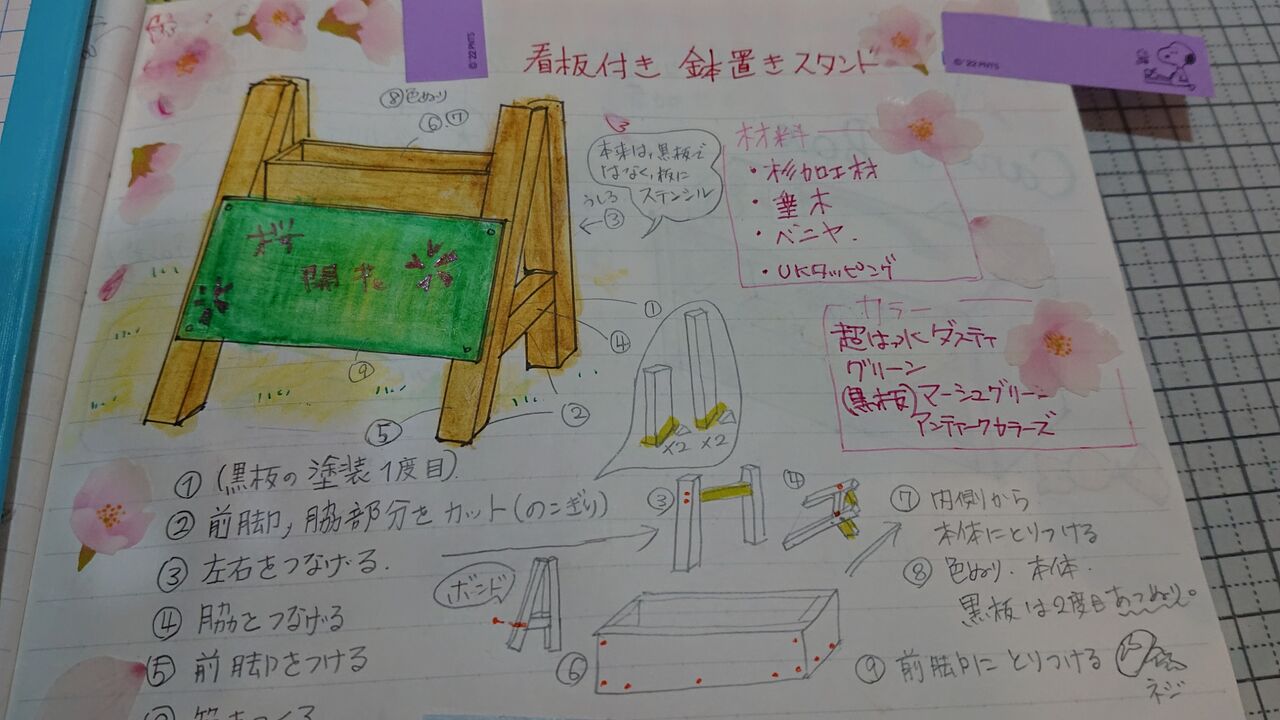 © '22 PNTS
© '22 PNTS
看板付き 鉢置きスタンド
⑧色ぬり
⑥.⑦
本来は、黒板で
はなく、板に
ステンシル
うしろ
←③
材料
・杉加工材
・垂木
・ベニヤ.
・UKタッピング
桜
開花
①
④
②
⑤
⑨
×2 ×2
カラー
超はっ水 ダスティ
グリーン
(黒板) マーシュグリーン
アンティークカラーズ
① (黒板の塗装1度目).
② 前脚, 脇部分をカット(のこぎり)
③ 左右をつなげる.
④ 脇とつなげる
⑤ 前脚をつける
ボンド
③
④
⑥
⑦ 内側から
本体にとりつける
⑧ 色ぬり. 本体.
黒板は2度目あつぬり。
⑨ 前脚にとりつける
ネジ